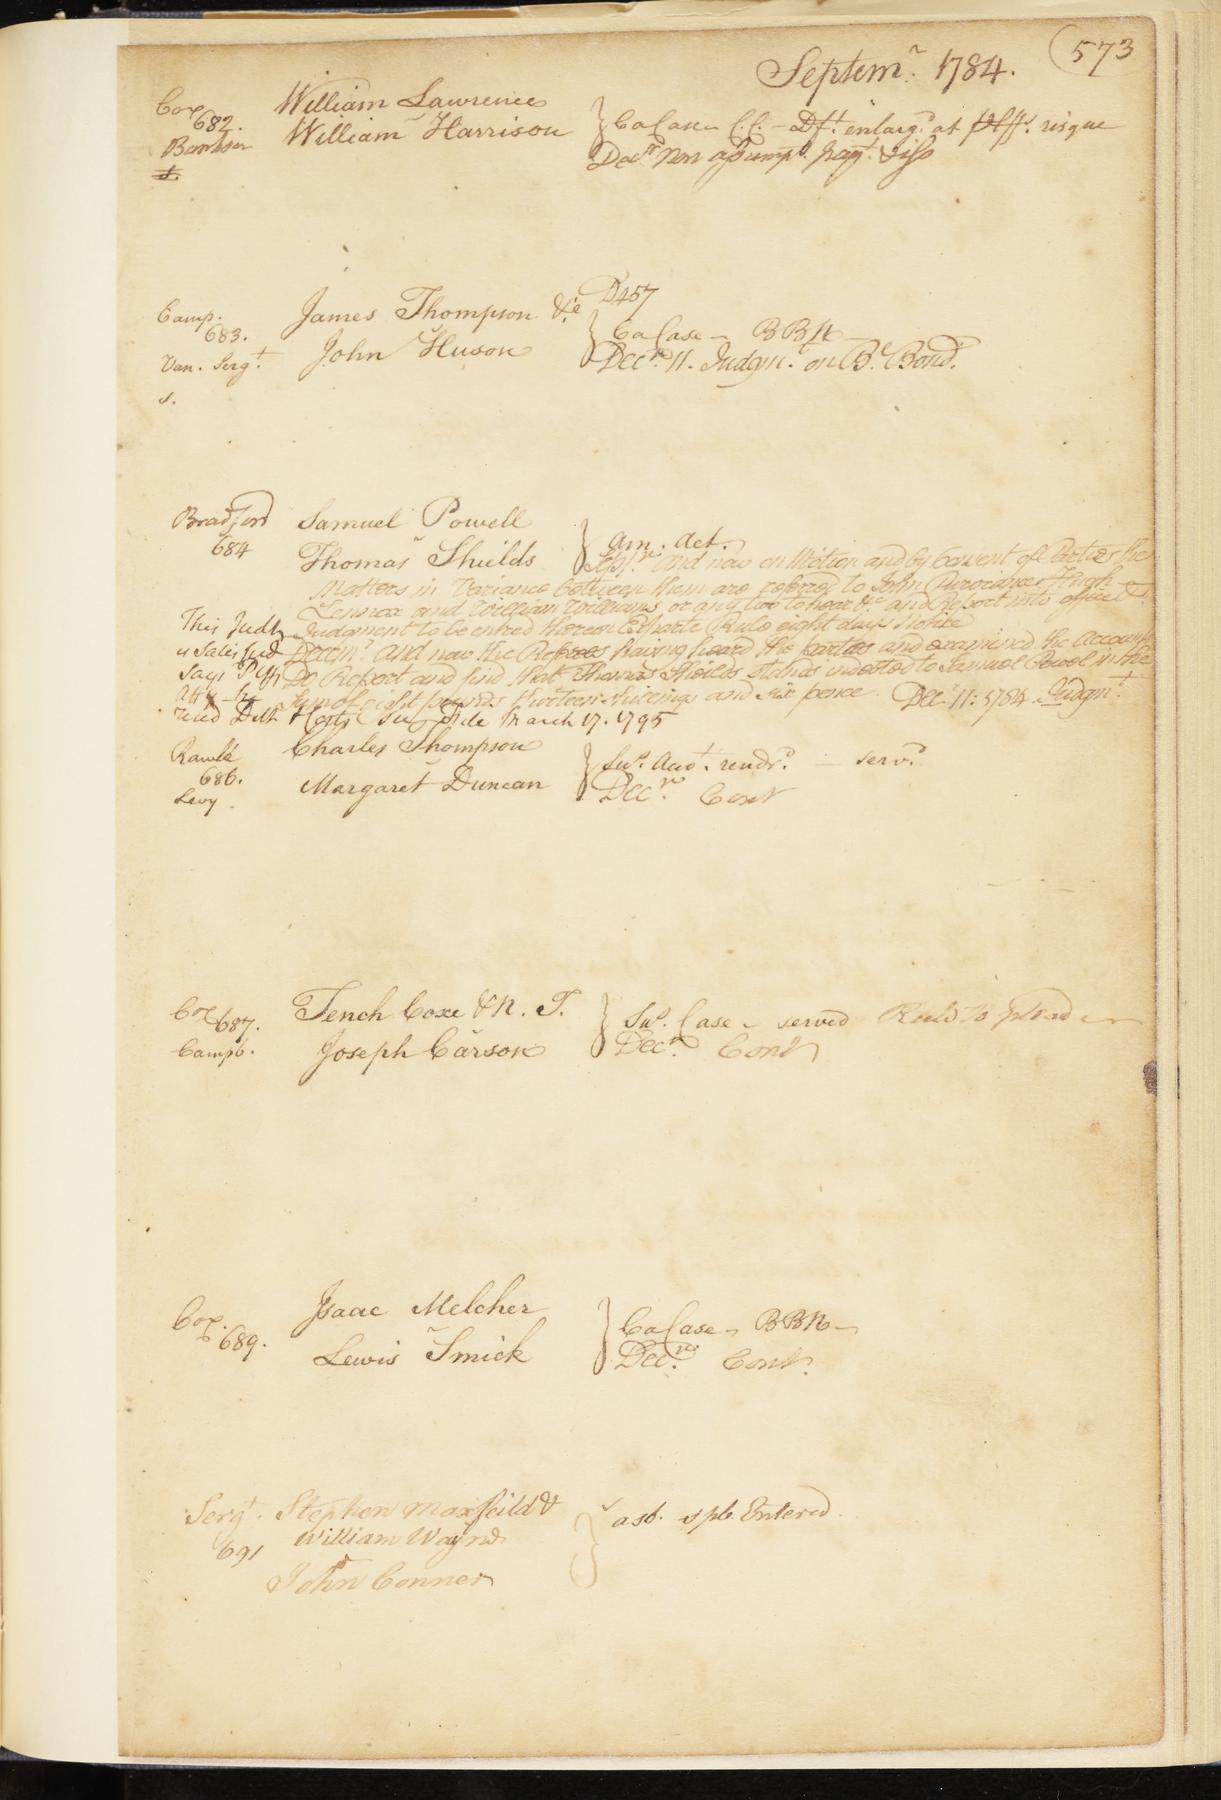 573
Septemr. 1784.
Cox William Lawrence
682. William Harrison } Ca Case C.C. - Dft. enlargd. at Plffs. risque
Decr. Non assumpt. paymt. & iss
s.
D457
Camp. James Thompson &c
683. John Huson } Ca Case BBR
Van. Sergt. Decr. 11. Judgm. on Bl. Bond.
s.
Bradford Samuel Powell
684 Thomas Shields } Am. Act.
Sept. and now on Motion and by Consent of Parties the
Matters in Variance between them are referred to John Hugh
Lennox and William Williams or any two to hear &c and Report into office
Judgment to be entred thereon Exparte Rule eight days notice
This Judt. Decemr. And now the Referees having heard the parties and examined the Accounts
is satisfied Do Report and find that Thomas Shields stands indebted to Samuel Powel in the
says Plffs Sum of eight pounds thirteen shillings and six pence. Decr. 11. 1784. Judgmt.
Atty March 17. 1795
Rawle Charles Thompson
686. Margaret Duncan } Sus. Acct. rendr. - servd.
Levy Decr. Cont
Cox Tench Coxe & N. F.
687. Joseph Carson } Sus. Case served Ruld to plead
Campb. Decr. Cont
Cox. Isaac Melcher
689. Lewis Smick } Ca Case BBR
Decr. Cont.
Sergt. Stephen Maxfeild &
William Wayne } asb. spb. Entered
691
John Conner